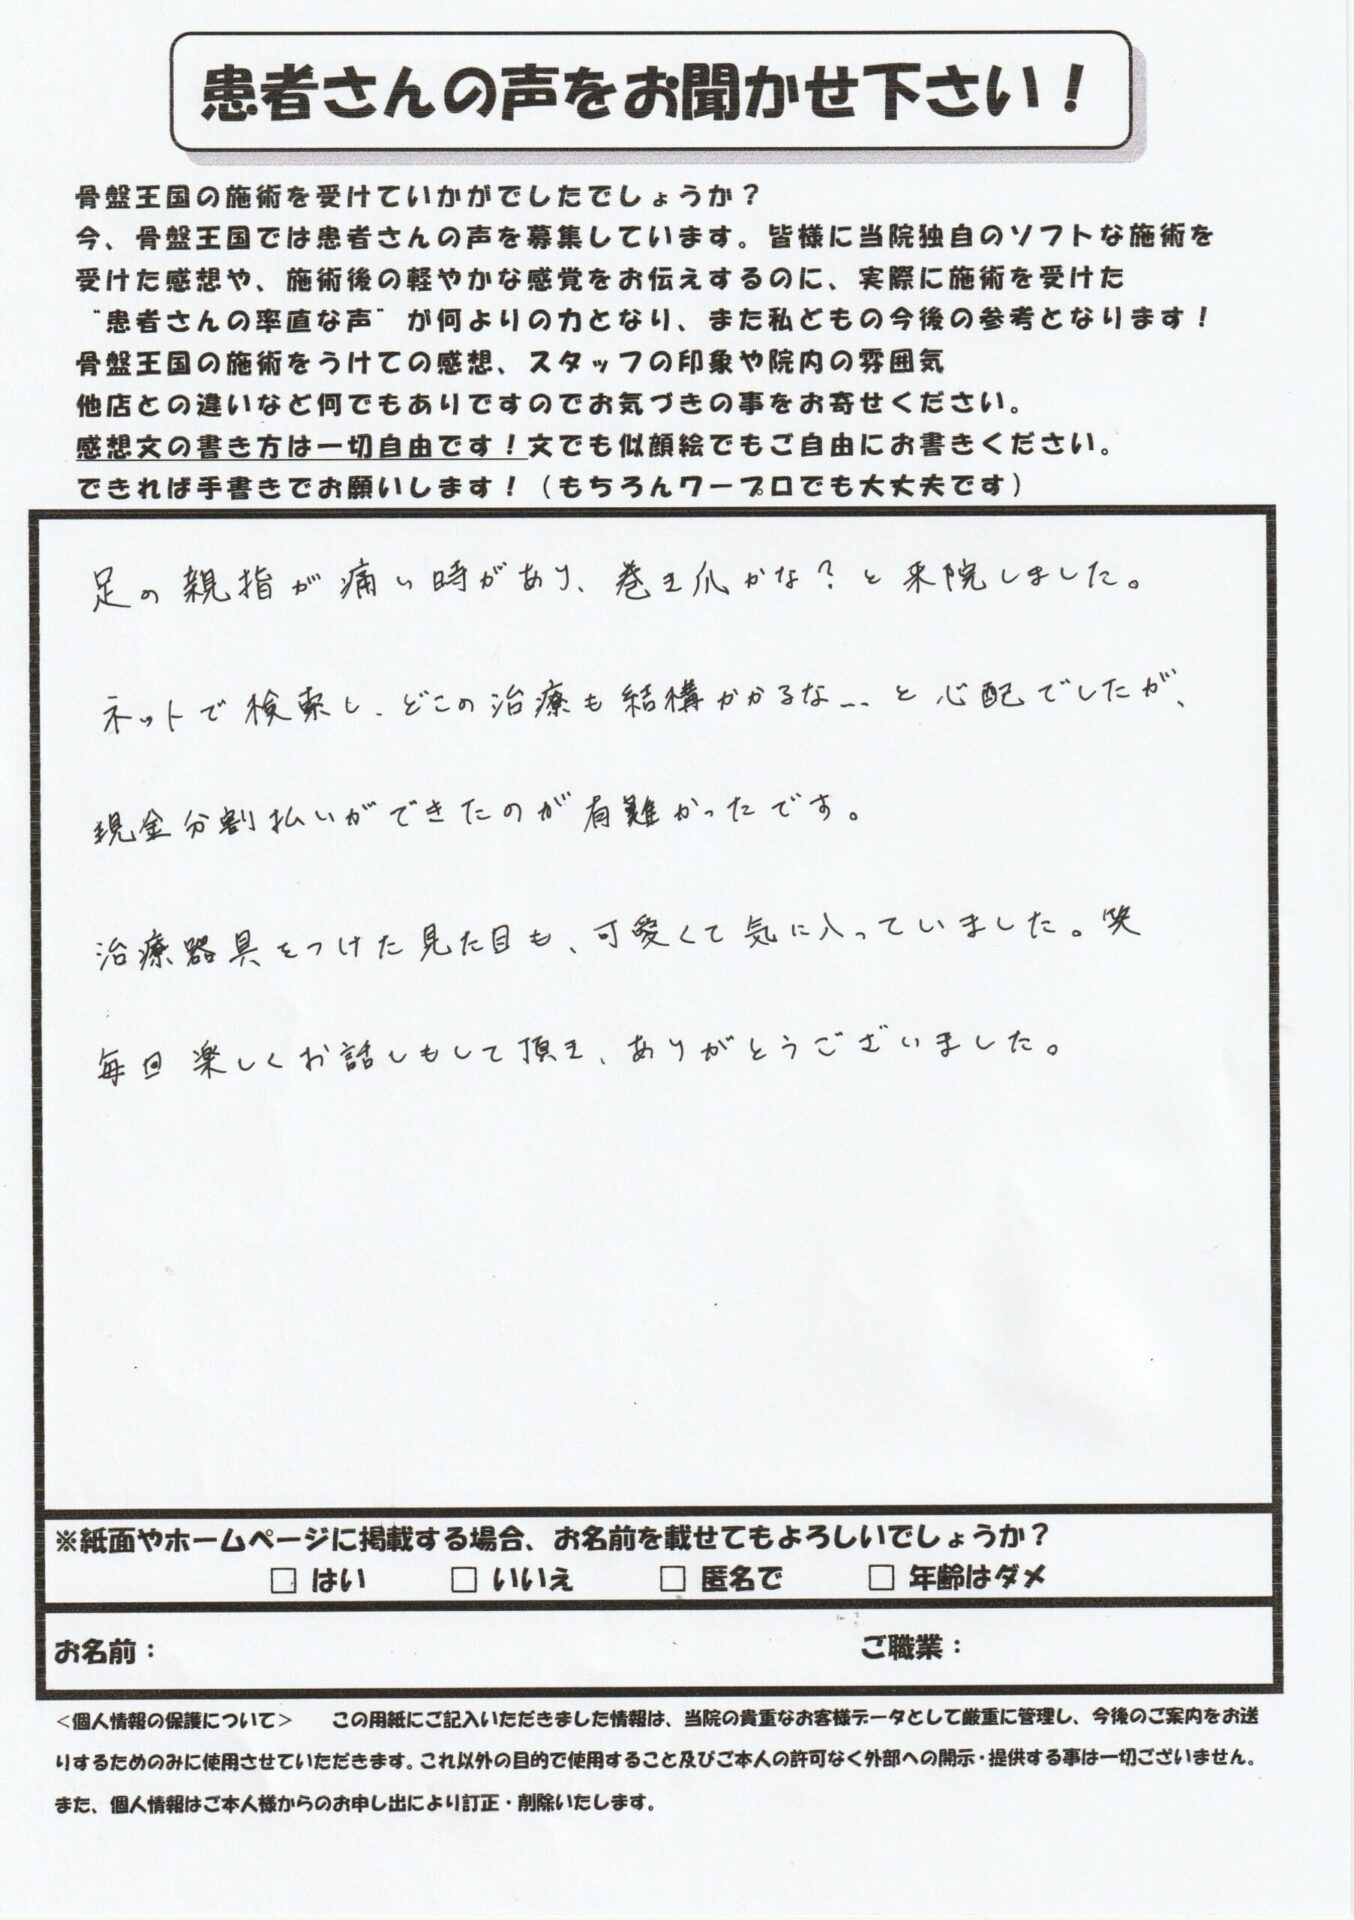 患者さんの声をお聞かせ下さい！
骨盤王国の施術を受けていかがでしたでしょうか？
今、骨盤王国では患者さんの声を募集しています。皆様に当院独自のソフトな施術を
受けた感想や、施術後の軽やかな感覚をお伝えするのに、実際に施術を受けた
“患者さんの率直な声”が何よりの力となり、また私どもの今後の参考となります！
骨盤王国の施術をうけての感想、スタッフの印象や院内の雰囲気
他店との違いなど何でもありですのでお気づきの事をお寄せください。
感想文の書き方は一切自由です！文でも似顔絵でもご自由にお書きください。
できれば手書きでお願いします！（もちろんワープロでも大丈夫です）
足の親指が痛い時があり、巻き爪かな？と来院しました。
ネットで検索し、どこの治療も結構かかるな...と心配でしたが、
現金分割払いができたのが有難かったです。
治療器具をつけた見た目も、可愛くて気に入っていました。笑
毎回楽しくお話しもして頂き、ありがとうございました。
※紙面やホームページに掲載する場合、お名前を載せてもよろしいでしょうか？
□ はい　□ いいえ　□ 匿名で　□ 年齢はダメ
お名前：　ご職業：
＜個人情報の保護について＞　この用紙にご記入いただきました情報は、当院の貴重なお客様データとして厳重に管理し、今後のご案内をお送
りするためのみに使用させていただきます。これ以外の目的で使用すること及びご本人の許可なく外部への開示・提供する事は一切ございません。
また、個人情報はご本人様からのお申し出により訂正・削除いたします。